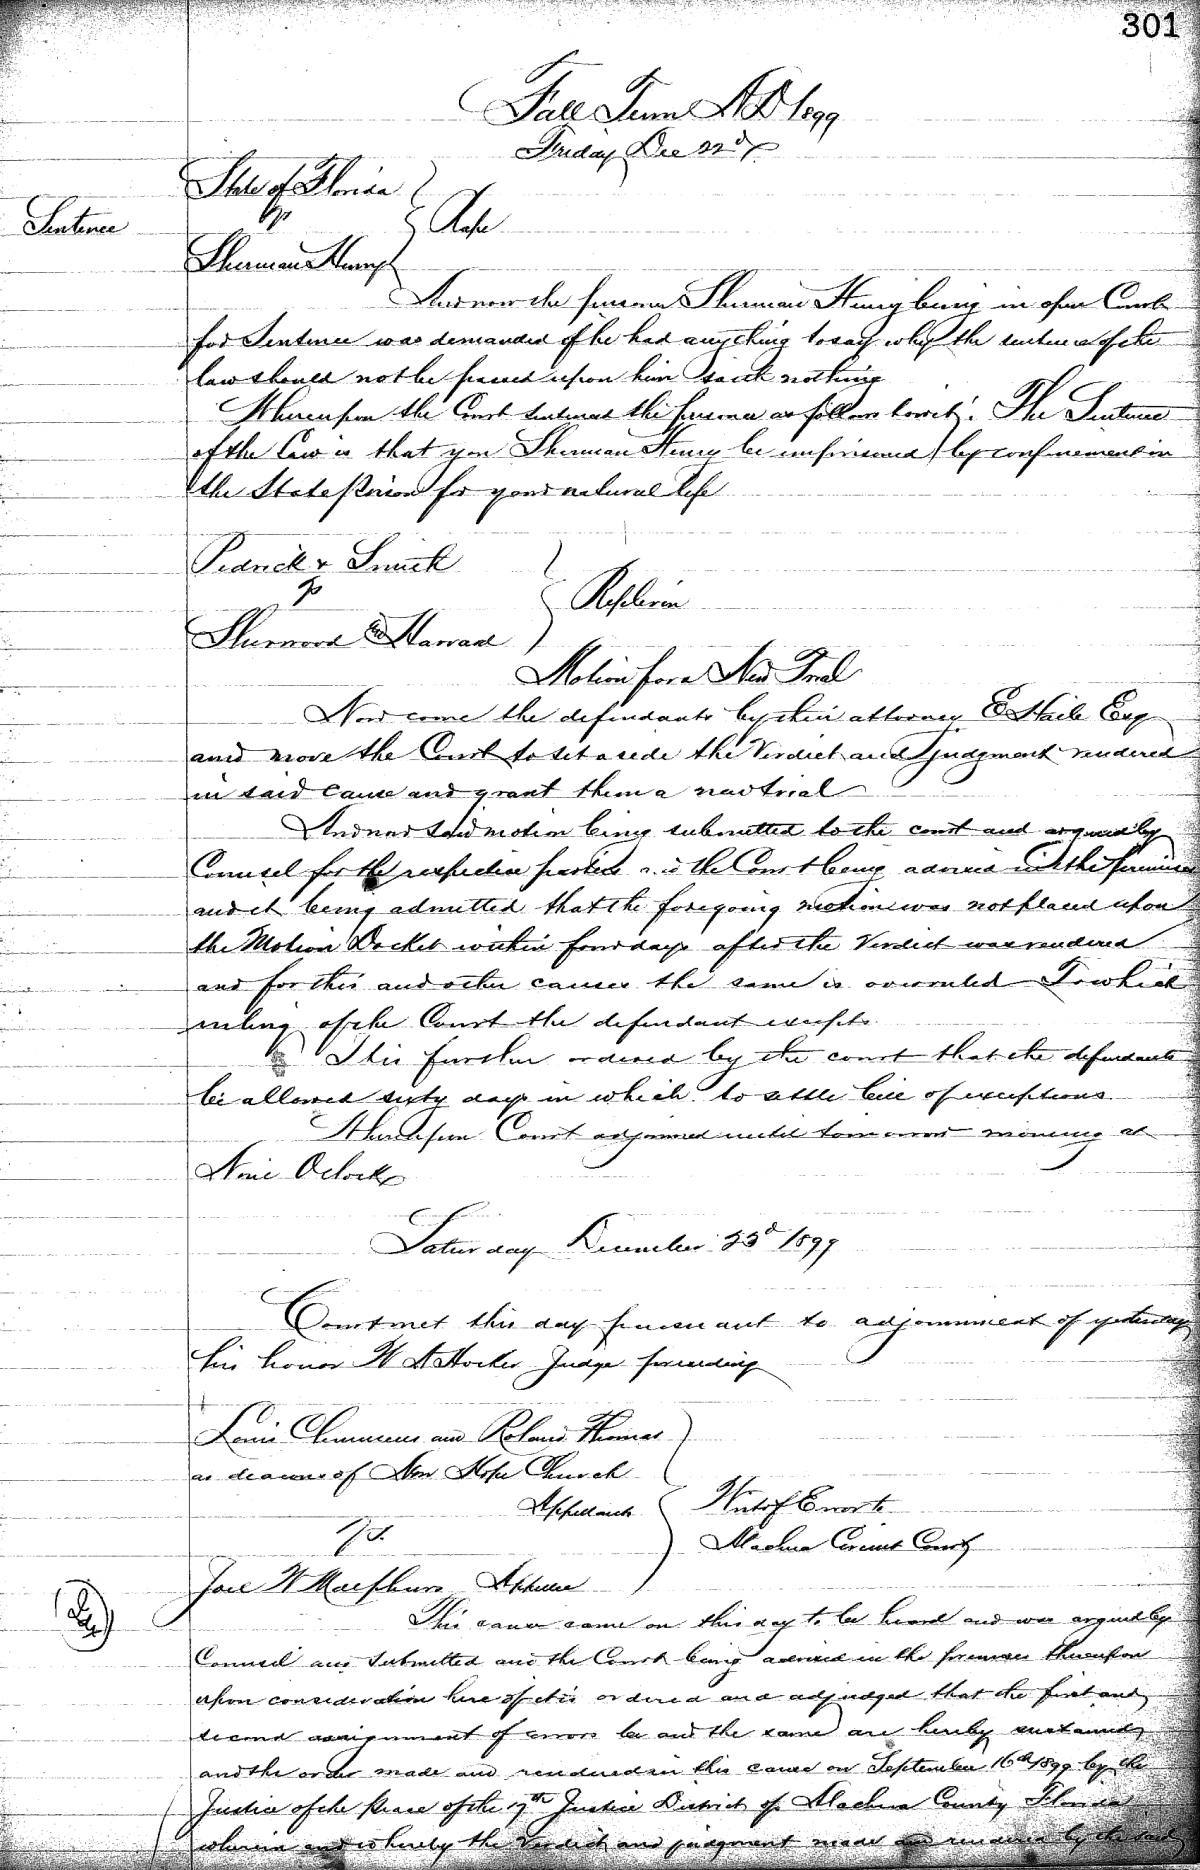 301
Fall Term AD 1899
Friday Dec 22d
State of Florida
vs
Sentence
Rape
Sherman Henry
And now the prisoner Sherman Henry being in open Court
for Sentence was demanded if he had anything to say why the sentence of the
law should not be passed upon him saith nothing
Whereupon the Court sentenced the prisoner as follows towit: The Sentence
of the Law is that you Sherman Henry be imprisoned by confinement in
the State prison for your natural life
& Smith
vs
Replevin
Sherwood &
Motion for a New Trial
Now come the defendants by their attorney E Haile Esq
and move the Court to set aside the Verdict and Judgment rendered
in said cause and grant them a new trial
And now said motion being submitted to the court and argued by
Counsel for the respective parties and the Court being advised in the premises
and it being admitted that the foregoing motion was not placed upon
the Motion Docket within four days after the Verdict was rendered
and for this and other causes the same is overruled To which
ruling of the Court the defendant excepts
It is further ordered by the court that the defendants
be allowed sixty days in which to settle bill of exceptions
Whereupon Court adjourned until tomorrow morning at
Nine Oclock
Saturday December 23d 1899
Court met this day pursuant to adjournment of yesterday
his honor W A Hocker Judge presiding
and Thomas
as deacons of New Hope Church
Appellants
Writ of Error to
vs.
Alachua Circuit Court
W Appellee
This cause came on this day to be heard and was argued by
Counsel and Submitted and the Court being advised in the premises thereupon
upon consideration hereof it is ordered and adjudged that the first and
second assignment of errors be and the same are hereby sustained
and the order made and rendered in this cause on September 16th 1899 by the
Justice of the Peace of the Justice District of Alachua County Florida
wherein and whereby the Verdict and judgment made and rendered by the said